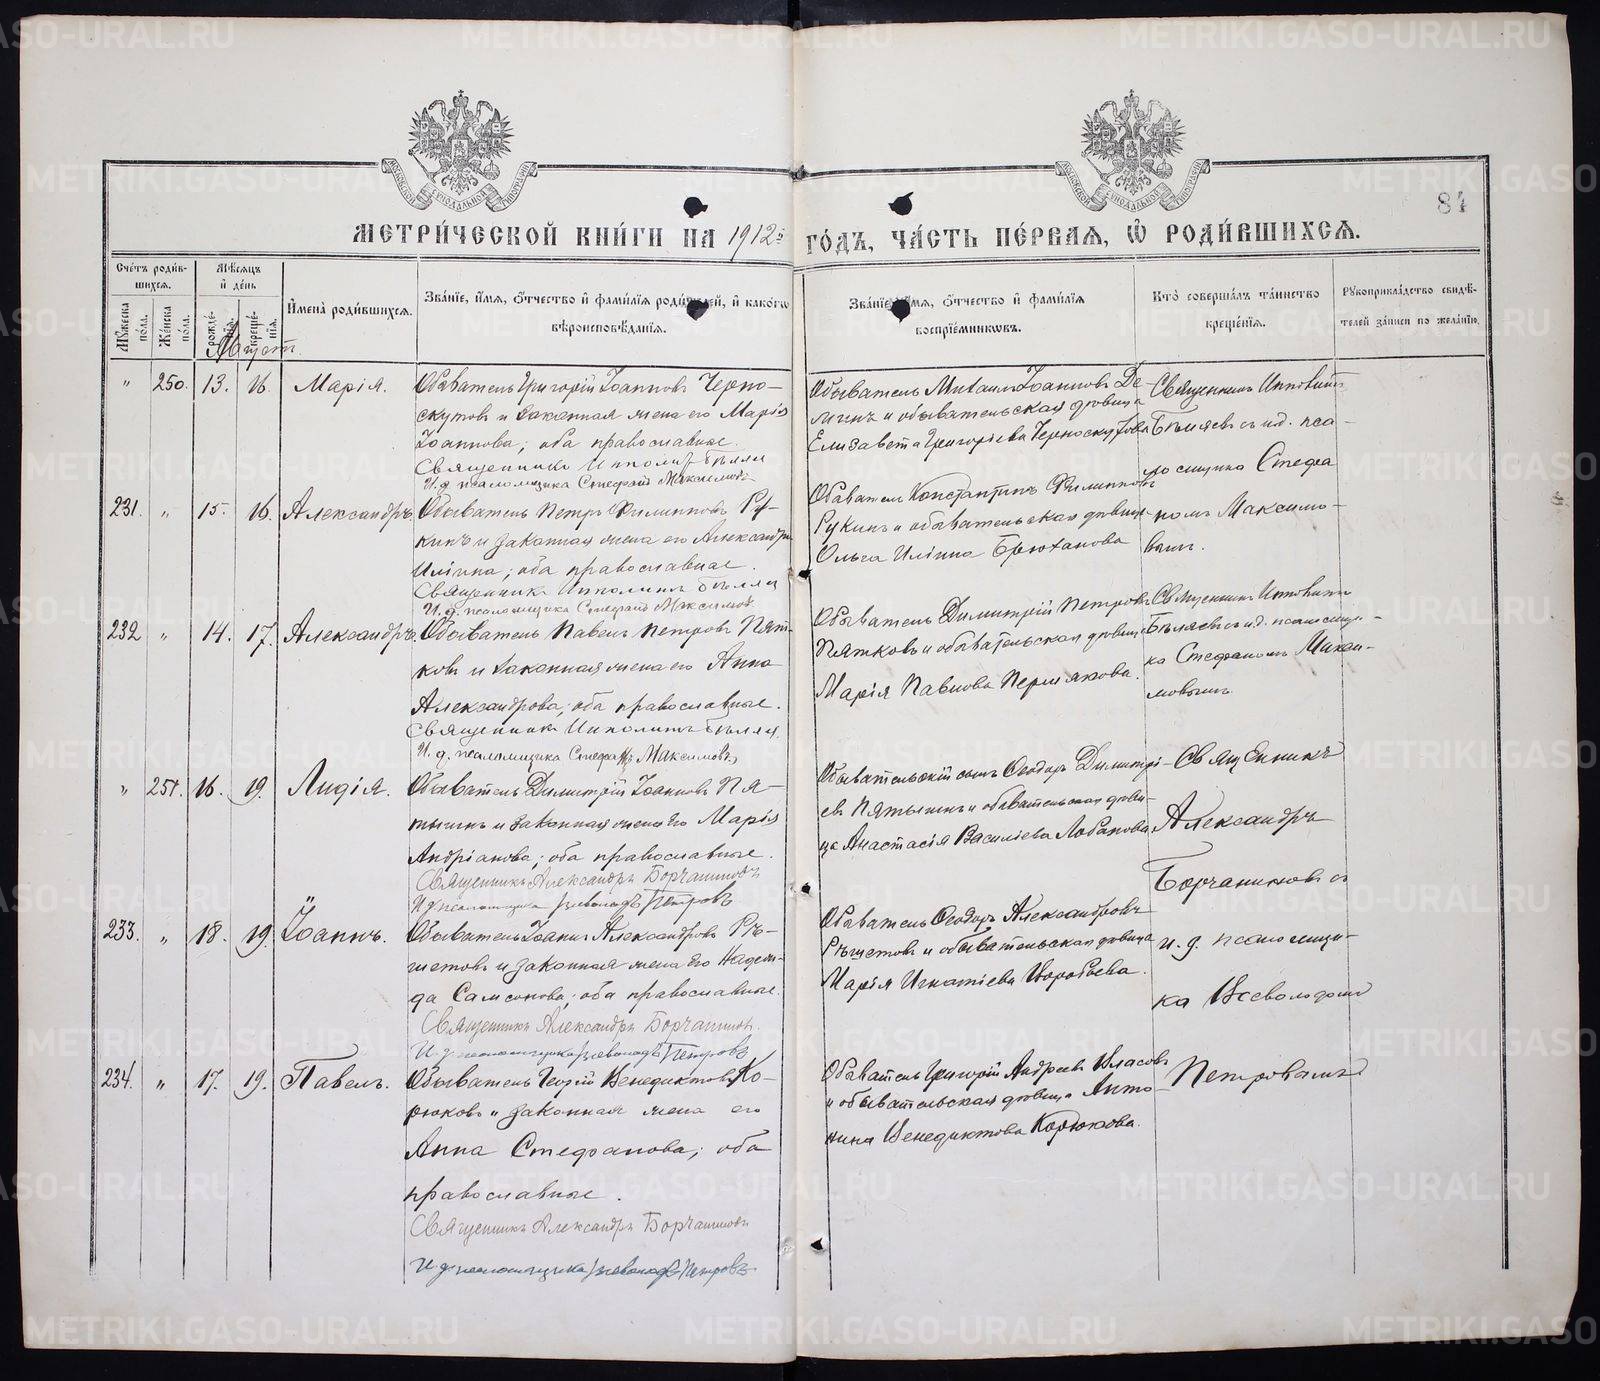 84
МЕТРИ́ЧЕСКОЙ КНИ́ГИ НА 1912й ГО́ДЪ, ЧА́СТЬ ПЕ́РВАЯ, Ѡ҆ РОДИ́ВШИХСѦ.
Сче́тъ роди́в-
шихсѧ.
Мꙋ́жеска по́ла.
Же́нска по́ла.
Мѣ́сѧцъ
и҆ де́нь
рожде́-нїѧ.
креще́-нїѧ.
И҆мена̀ роди́вшихсѧ.
Зва́нїе, и҆́мѧ, ѻ҆́тчество и҆ фами́лїѧ роди́телей, и҆ како́гѡ
вѣроисповѣ́данїѧ.
Зва́нїе, и҆́мѧ, ѻ҆́тчество и҆ фами́лїѧ
воспрїе́мникѡвъ.
Кто̀ соверша́лъ та́инство
креще́нїѧ.
Рꙋкоприкла́дство свидѣ́-
телей за́писи по жела́нїю.
Августъ.
" 250. 13. 16. Марія.
Обыватель Григорій Іоанновъ Черно-
скутовъ и законная жена его Марія
Іоаннова; оба православные.
Священникъ Ипполитъ Бѣляев
И. д. псаломщика Стефанъ Максимовъ
Обыватель Михаилъ Іоанновъ Де-
и обывательская дѣвица
Елизавета Григоріева Черноскутова
Священникъ Ипполитъ
Бѣляевъ съ и.д. пса-
ломщика Стефа
номъ Максимо-
вымъ.
231. " 15. 16. Александръ.
Обыватель Петръ Филипповъ Ру-
кинъ и законная жена его Александра
Иліина; оба православные.
Священникъ Ипполитъ Бѣляев
И. д. псаломщика Стефанъ Максимовъ
Обыватель Константинъ Филипповъ
Рукинъ и обывательская дѣвица
Ольга Иліина Брюханова
232 " 14. 17. Александръ.
Обыватель Павелъ Петровъ Пят-
ковъ и законная жена его Анна
Александрова; оба православные.
Священникъ Ипполитъ Бѣляев
И. д. псаломщика Стефанъ Максимовъ
Обыватель Димитрій Петровъ
Пятковъ и обывательская дѣвица
Марія Павлова Пермякова.
Священникъ Ипполитъ
Бѣляевъ съ и.д. псаломщи-
ка Стефаномъ Макси-
мовымъ.
" 251. 16. 19. Лидія.
Обыватель Димитрій Іоанновъ Пя-
тыгинъ и законная жена его Марія
Андріанова; оба православные.
Священникъ Александръ Борчаниновъ
И.д. псаломщика Всеволодъ Петровъ
Обывательскій сынъ Ѳеодоръ Димитрі-
евъ Пятыгинъ и обывательская дѣви-
ца Анастасія Василіева Лобанова
Священникъ
Александръ
Борчаниновъ съ
и. д. псаломщи-
ка Всеволодомъ
Петровымъ
233. " 18. 19. Іоаннъ.
Обыватель Іоаннъ Александровъ Рѣ-
шетовъ и законная жена его Надеж-
да Самсонова; оба православные.
Священникъ Александръ Борчаниновъ.
И.д. псаломщика Всеволодъ Петровъ
Обыватель Ѳеодоръ Александровъ
Рѣшетовъ и обывательская дѣвица
Марія Игнатіева Воробьева.
234. " 17. 19. Павелъ.
Обыватель Георгій Венедиктовъ Ко-
рюковъ и законная жена его
Анна Стефанова; оба
православные.
Священникъ Александръ Борчаниновъ
И.д. псаломщика Всеволодъ Петровъ
Обыватель Григорій Андреевъ Власовъ
и обывательская дѣвица Анто-
нина Венедиктова Корюкова.
METRIKI.GASO-URAL.RU